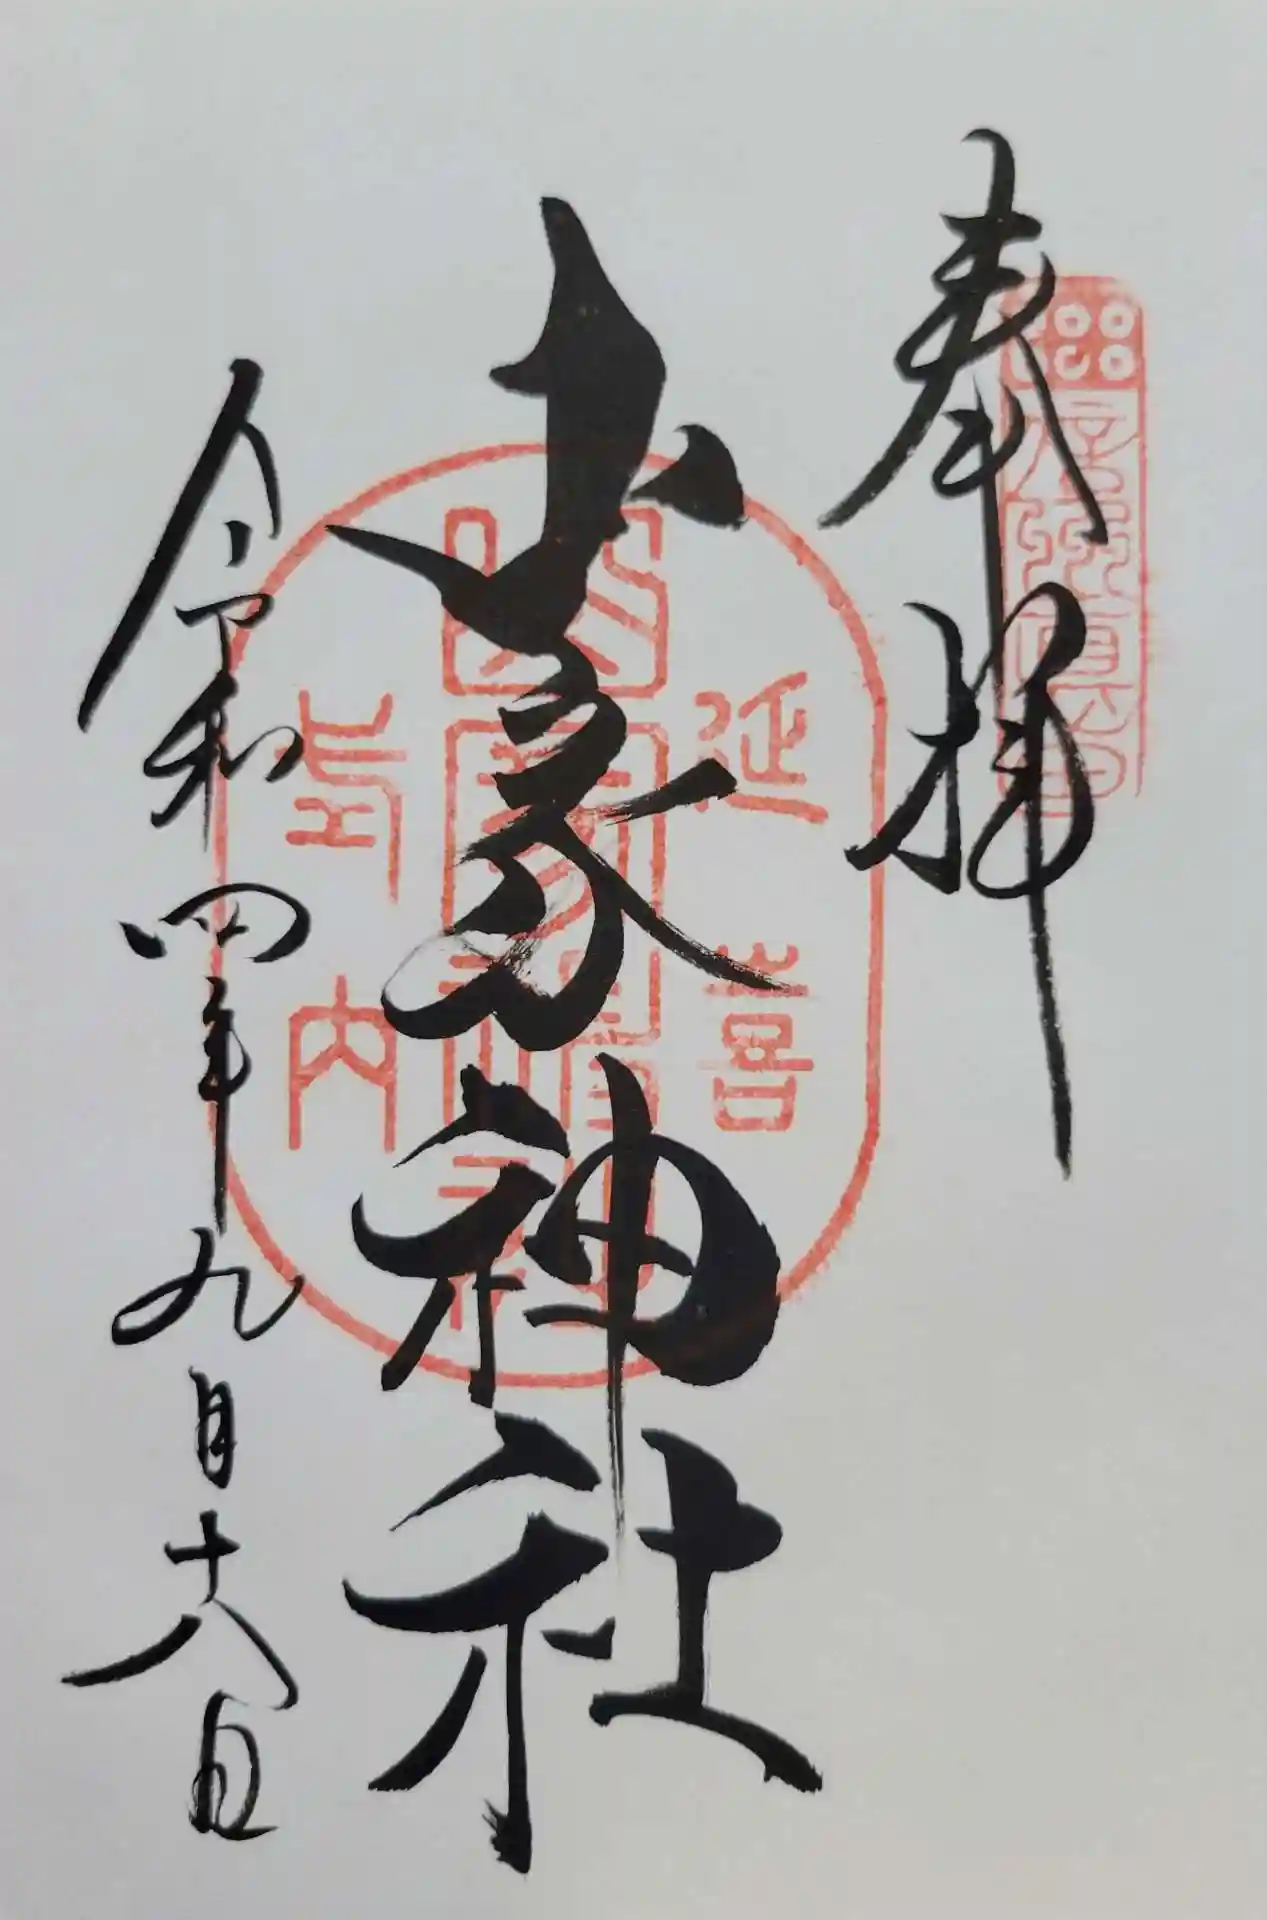 奉拝
山家神社
令和四年九月十八日
延喜
式内